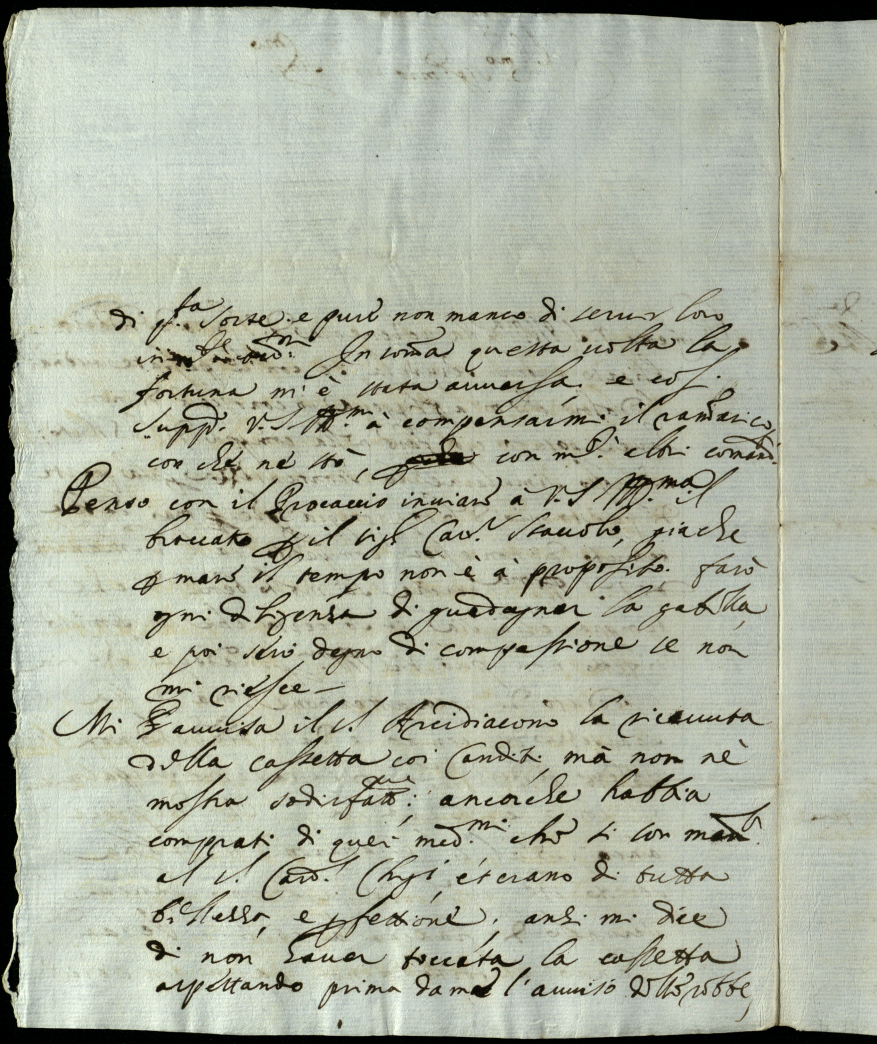 di q.ta sorte e pure non manco di servir loro
in
In som̃a questa volta la
fortuna m'è stata avversa. e così
Supp.co V. S. Ill.ma à compensarmi il ramarico,
con che ne stò, con m.ti altri comandi.
Penso con il Procaccio inviare à V. S. Ill.ma il
broccato p il Sig.r Card.l giache
p mare il tempo non è à proposito. farò
ogni diligenza di guadagnar la gabella,
e poi sarò degno di compassione se non
mi riesce—
Mi avvisa il S. Arcidiacono la ricevuta
della cassetta coi Canditi, mà non nè
mostra sodisfat.ne: ancorche habbia
comprati di quei med.mi che si son mand.ti
al S. Card.l Chigi, et erano di tutta
bellezza, e pfettione, anzi mi dice
di non haver toccata la cassetta
aspettando prima da me l'avviso delle robbe,